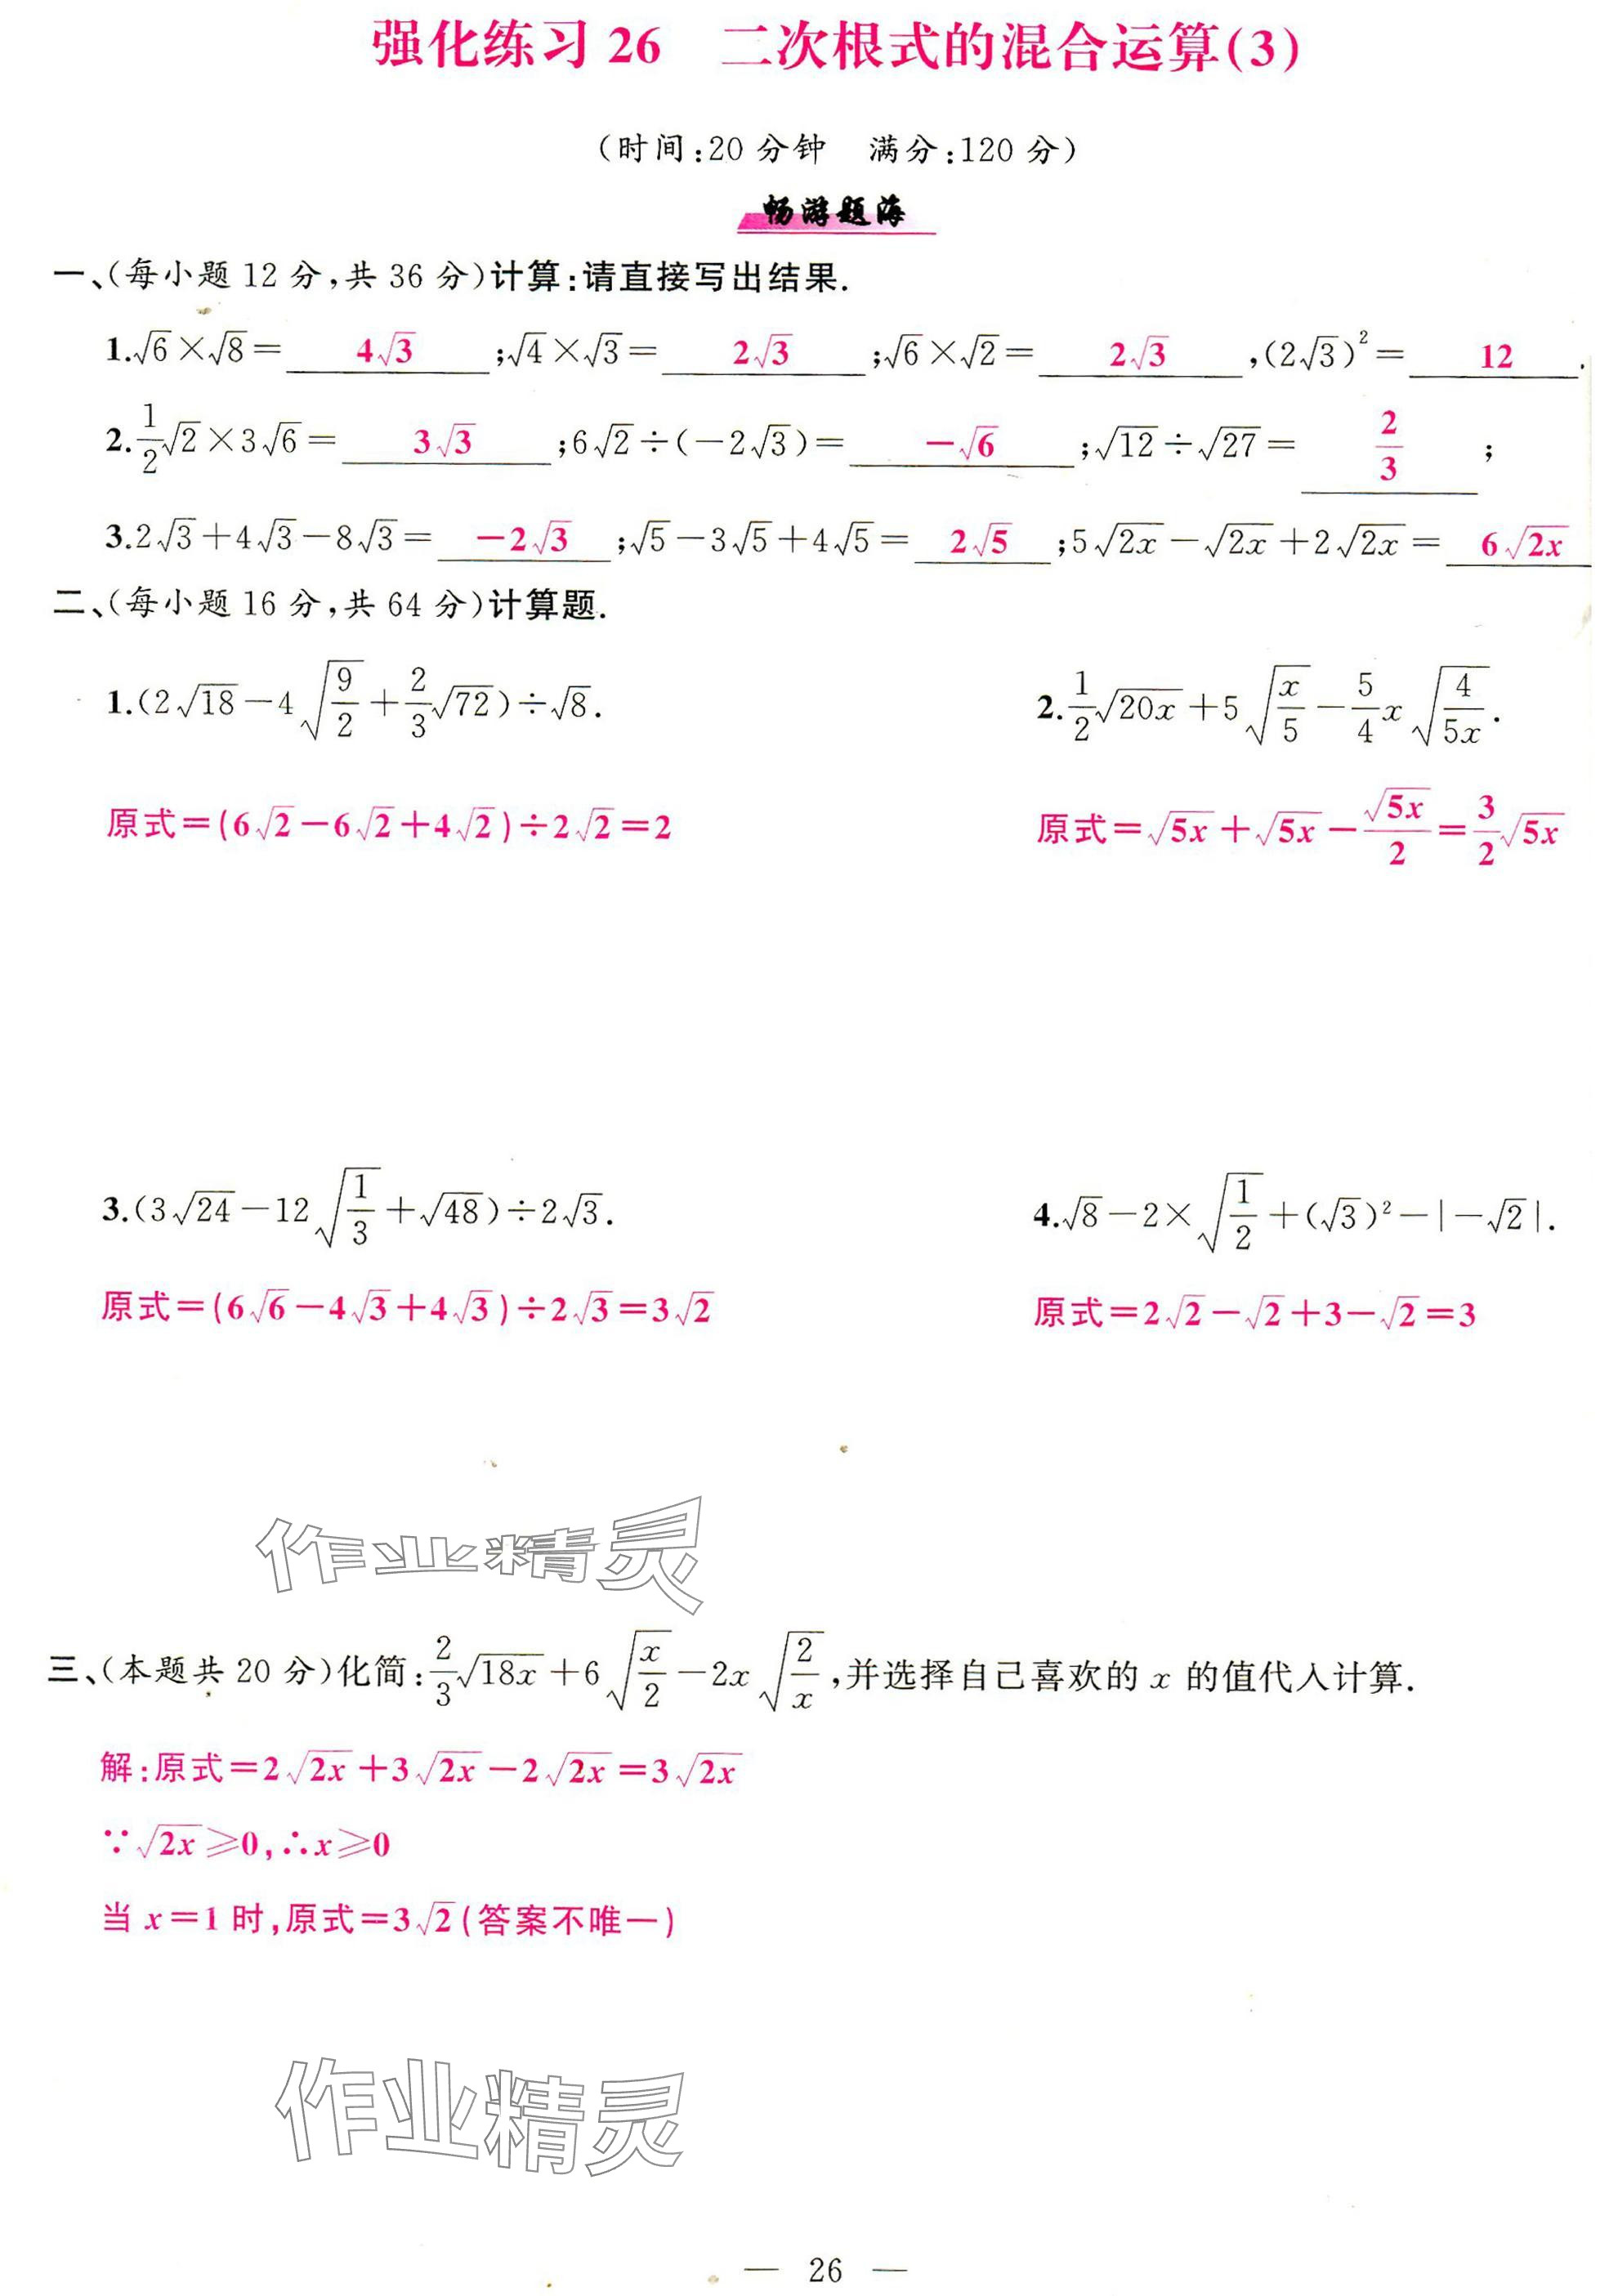 强化练习 26 二次根式的混合运算(3)
(时间:20 分钟 满分:120 分)
畅游题海
一、(每小题 12 分,共 36 分)计算:请直接写出结果.
1.√6×√8=4√3;√4×√3=2√3;√6×√2=2√3,(2√3)²=12.
2.1/2√2×3√6=3√3;6√2÷(-2√3)=-√6;√12÷√27=2/3;
3.2√3+4√3-8√3=-2√3;√5-3√5+4√5=2√5;5√2x-√2x+2√2x=6√2x
二、(每小题 16 分,共 64 分)计算题.
1.(2√18-4√(9/2)+2/3√72)÷√8. 2.1/2√20x+5√(x/5)-5/4x√(4/5x).
原式=(6√2-6√2+4√2)÷2√2=2 原式=√5x+√5x-√5x/2=3/2√5x
3.(3√24-12√(1/3)+√48)÷2√3. 4.√8-2×√(1/2)+(√3)²-|-√2|.
原式=(6√6-4√3+4√3)÷2√3=3√2 原式=2√2-√2+3-√2=3
作业精灵
三、(本题共 20 分)化简:2/3√18x+6√(x/2)-2x√(2/x),并选择自己喜欢的 x 的值代入计算.
解:原式=2√2x+3√2x-2√2x=3√2x
∵√2x≥0,∴x≥0
当 x=1 时,原式=3√2(答案不唯一)
作业精灵
— 26 —